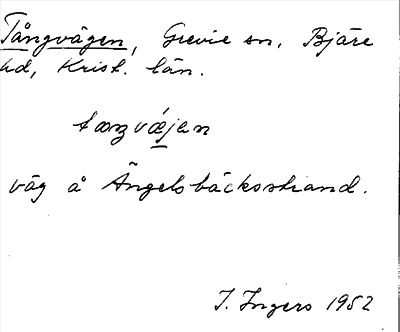 Tångvägen, Grevie sn. Bjäre
hd, Krist. län.
tangvǽjen
väg å Ängelsbäcksstrand.
I. Ingers 1952